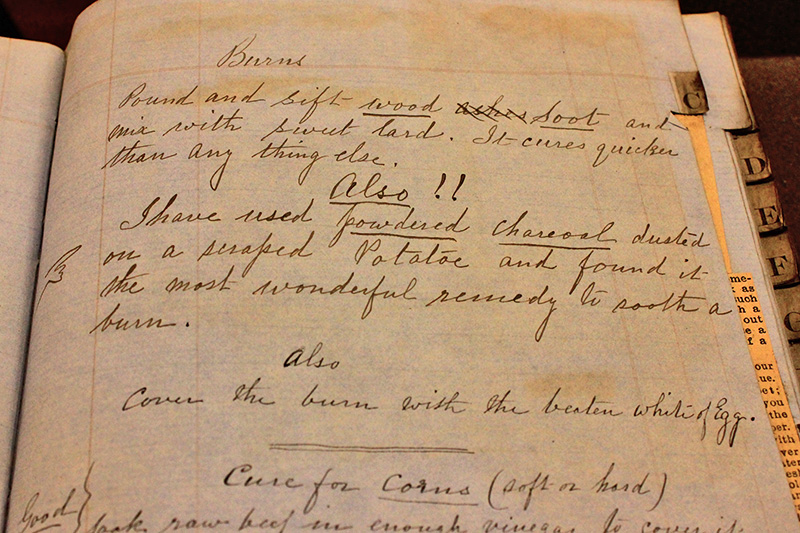 Burns
Pound and sift wood ashes Soot and
mix with sweet lard. It cures quicker
than any thing else.
Also !!
I have used powdered charcoal dusted
on a scraped Potatoe and found it
the most wonderful remedy to sooth a
burn.
Also
Cover the burn with the beaten white of Egg.
Cure for Corns (soft or hard)
Good
raw beef in enough vinegar to cover it
C
D
E
F
G
me-
as
such a
out
e a
f a
our
ue.
et;
you
the
per.
ith
ver